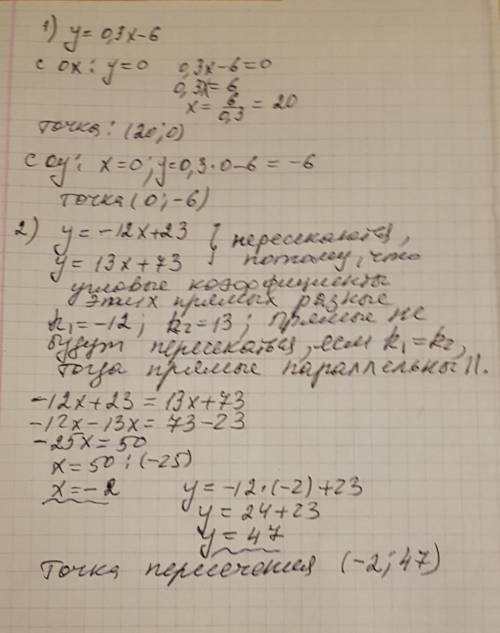 1) y = 0,3x-6
с ox: y=0 0,3x-6=0
0,3x=6
x= 6/0,3 = 20
точка: (20;0)
с oy: x=0; y=0,3·0-6 = -6
точка (0;-6)
2) y = -12x+23 } пересекаются,
y = 13x+73 } потому, что
угловые коэффициенты
этих прямых разные
k₁=-12; k₂=13; прямые не
будут пересекаться, если k₁=k₂,
тогда прямые параллельны ||.
-12x+23 = 13x+73
-12x-13x= 73-23
-25x=50
x=50:(-25)
x=-2 y=-12·(-2)+23
y= 24+23
y = 47
Точка пересечения (-2;47)